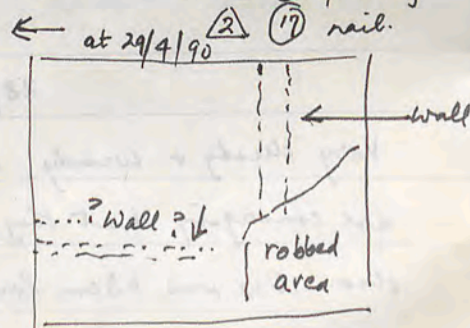 at 29/4/90 2 17 nail.
wall
? Wall ?
robbed
area